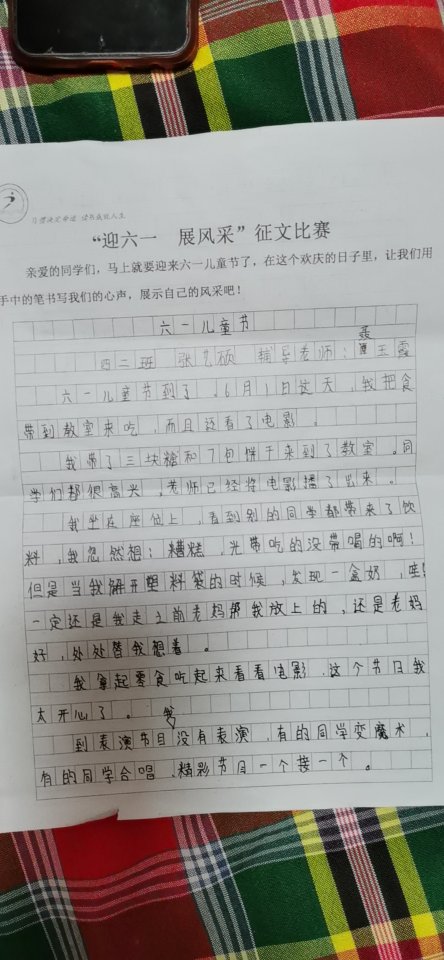 习惯决定命运 读书成就人生
“迎六一 展风采”征文比赛
亲爱的同学们，马上就要迎来六一儿童节了，在这个欢庆的日子里，让我们用
手中的笔书写我们的心声，展示自己的风采吧！
六一儿童节
聂
四二班 张艺硕 辅导老师：王霞
六一儿童节到了。6月1日这天，我把食
带到教室来吃，而且还看了电影。
我带了三块糖和7包饼干来到了教室。同
学们都很高兴，老师已经将电影播了出来。
我坐在座位上，看到别的同学都带来了饮
料，我忽然想：糟糕，光带吃的没带喝的啊！
但是当我解开塑料袋的时候，发现一盒奶，哇！
一定还是我走之前老妈帮我放上的，还是老妈
好，处处替我想着。
我拿起零食吃起来看看电影，这个节日我
太开心了。
我
到表演节目没有表演，有的同学变魔术，
有的同学合唱，精彩节目一个接一个。